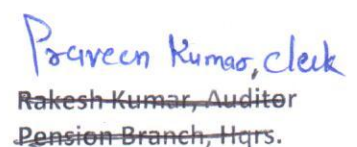 Praveen Kumar, clerk
Rakesh Kumar, Auditor
Pension Branch, Hqrs.